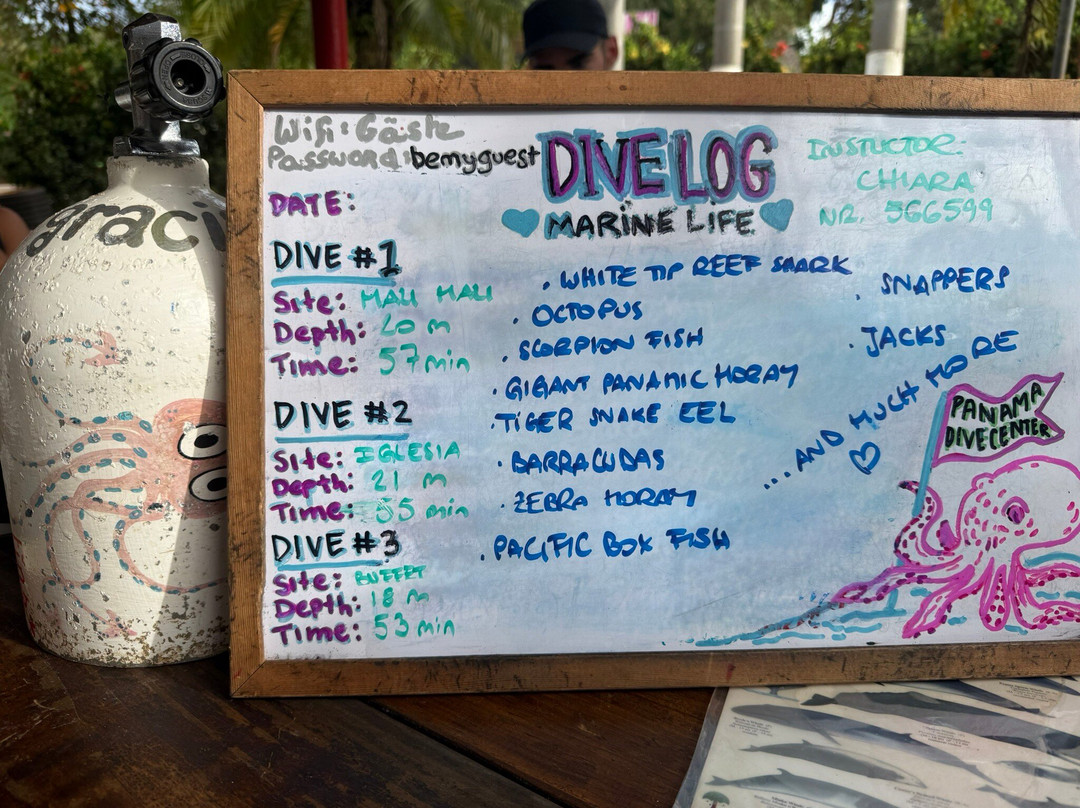 graci
Wifi: Gäste
Password: bemyguest
DIVE LOG
MARINE LIFE
INSTUCTOR:
CHIARA
NR. 566599
DATE:
DIVE #1
Site: MALI MALI
Depth: 20 m
Time: 57 min
DIVE #2
Site: IGLESIA
Depth: 21 m
Time: 55 min
DIVE #3
Site: BUFFET
Depth: 18 m
Time: 53 min
. WHITE TIP REEF SHARK
. OCTOPUS
. SCORPION FISH
. GIGANT PANAMIC MORAY
. TIGER SNAKE EEL
. BARRACUDAS
. ZEBRA MORAY
. PACIFIC BOX FISH
. SNAPPERS
. JACKS
... AND MUCH MORE
PANAMA
DIVECENTER